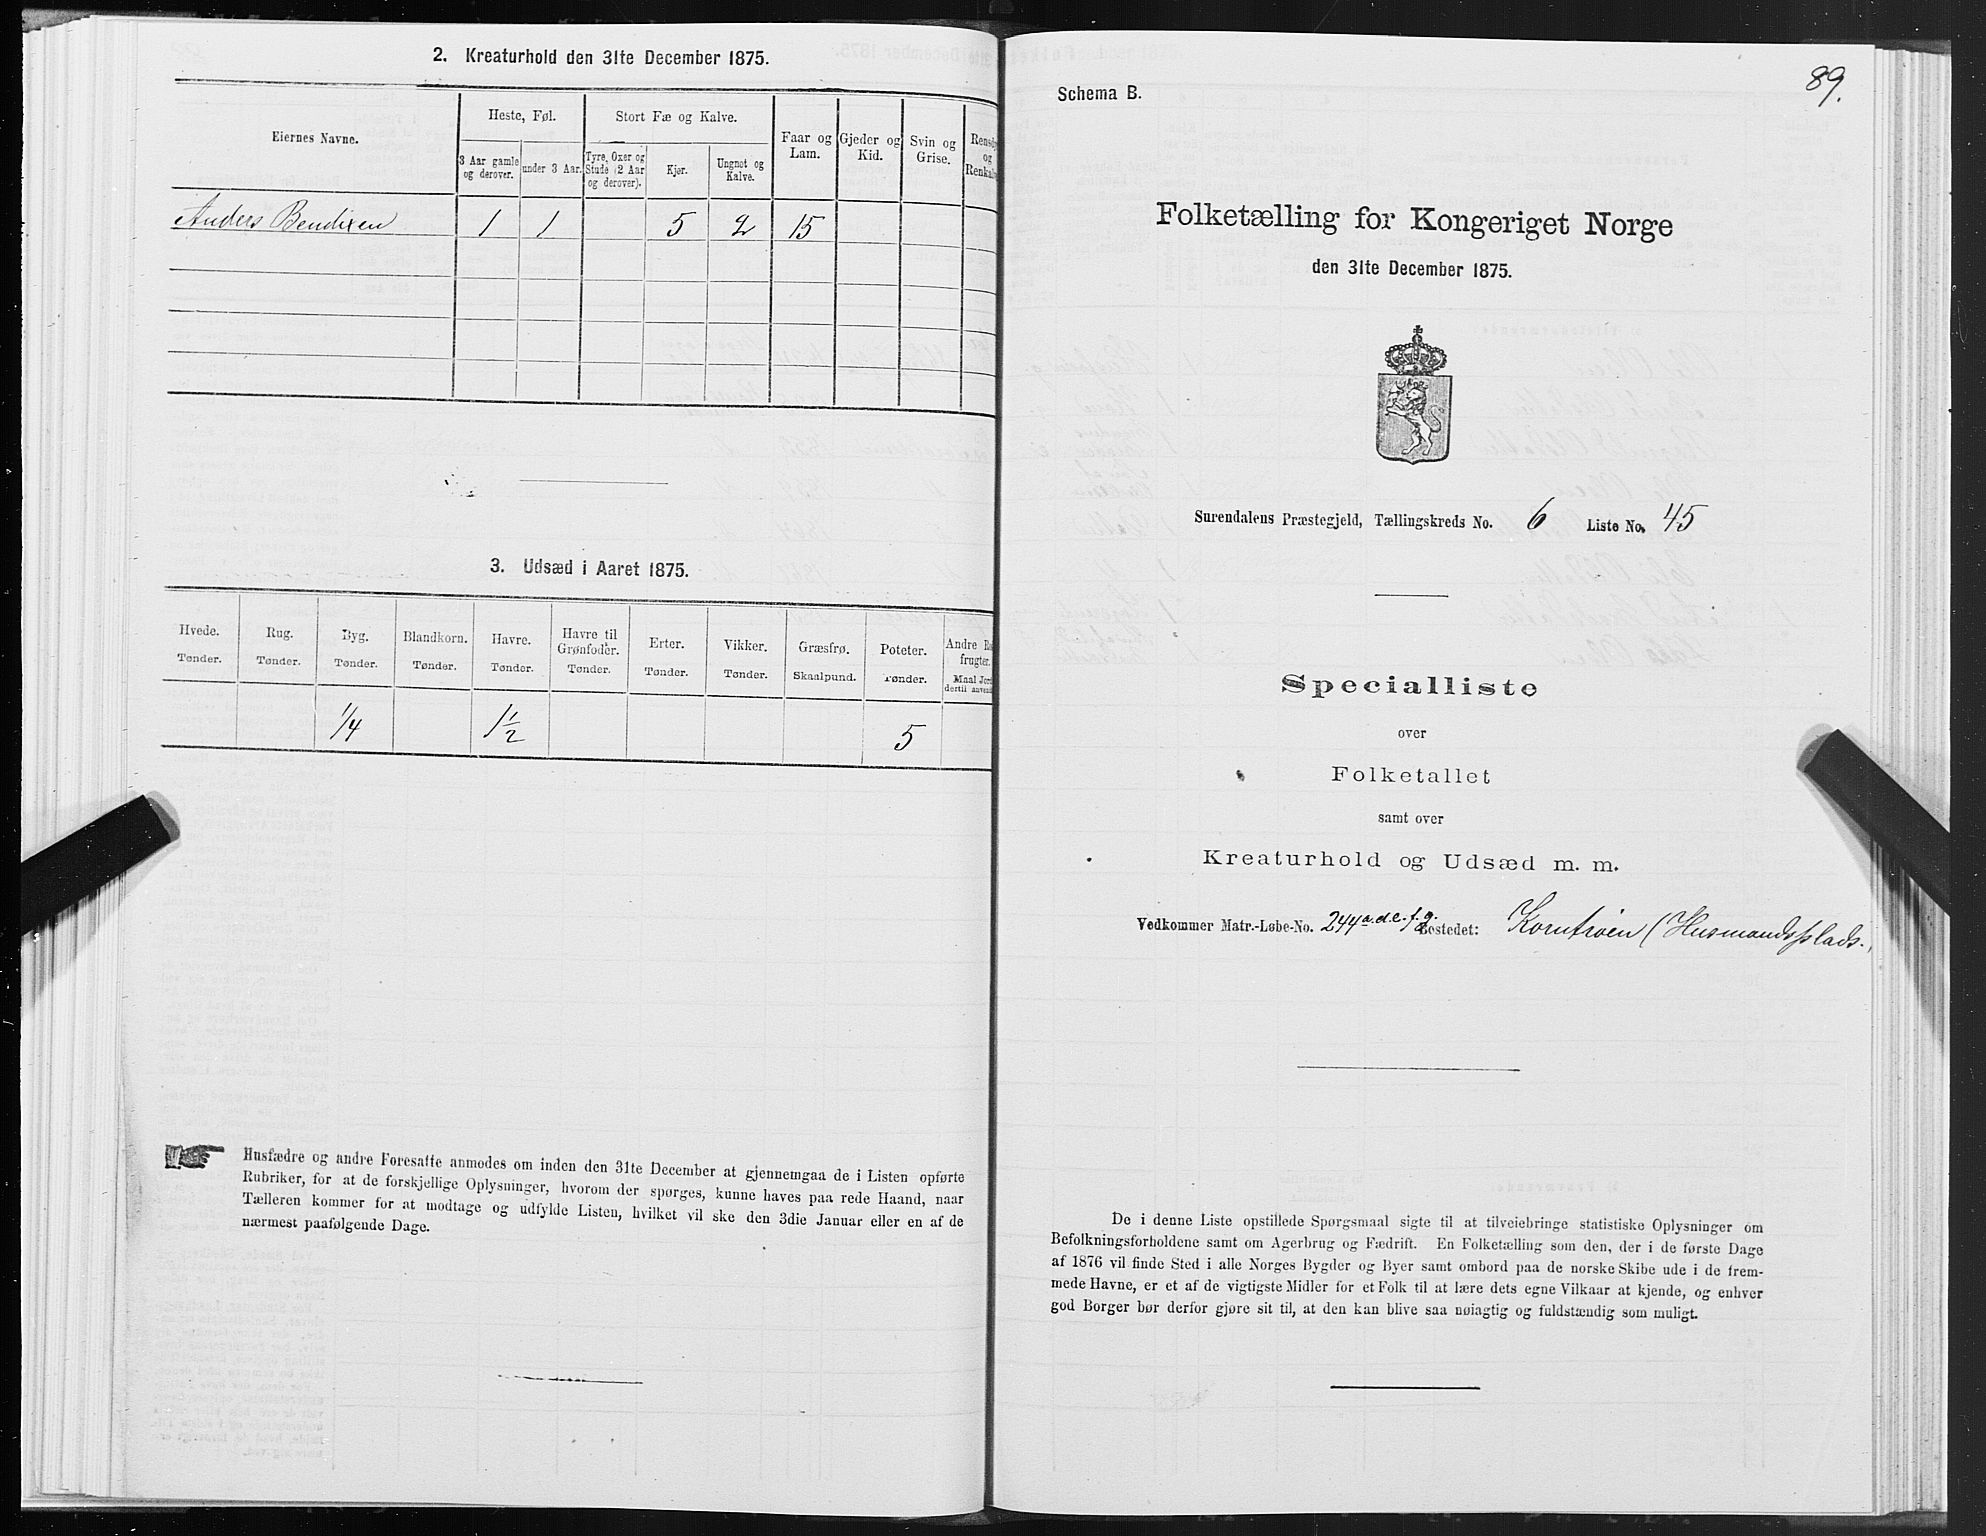 2. Kreaturhold den 31te December 1875.
Eiernes Navne.
Heste, Føl.
Stort Fæ og Kalve.
Faar og Lam.
Gjeder og Kid.
Svin og Grise.
og
3 Aar gamle og derover.
under 3 Aar.
Tyre, Oxer og Stude (2 Aar og derover).
Kjør.
Ungnøt og Kalve.
Anders Bendixen 1 1 5 2 15
3. Udsæd i Aaret 1875.
Hvede. Rug. Byg. Blandkorn. Havre. Havre til Grønfoder. Erter. Vikker. Græsfrø. Poteter. Andre
frugter.
Tønder. Tønder. Tønder. Tønder. Tønder. Tønder. Tønder. Tønder. Skaalpund. Tønder. Maal
dertil
1/4 1 1/2 5
Husfædre og andre Foresatte anmodes om inden den 31te December at gjennemgaa de i Listen opførte
Rubriker, for at de forskjellige Oplysninger, hvorom der spørges, kunne haves paa rede Haand, naar
Tælleren kommer for at modtage og udfylde Listen, hvilket vil ske den 3die Januar eller en af de
nærmest paafølgende Dage.
89.
Schema B.
Folketælling for Kongeriget Norge
den 31te December 1875.
Surendalens Præstegjeld, Tællingskreds No. 6 Liste No. 45
Specialliste
over
Folketallet
samt over
Kreaturhold og Udsæd m. m.
Vedkommer Matr.-Løbe-No. 244 a.d.e.f.g. Bostedet: Korntrøen (Husmandsplads.
De i denne Liste opstillede Spørgsmaal sigte til at tilveiebringe statistiske Oplysninger om
Befolkningsforholdene samt om Agerbrug og Fædrift. En Folketælling som den, der i de første Dage
af 1876 vil finde Sted i alle Norges Bygder og Byer samt ombord paa de norske Skibe ude i de frem-
mede Havne, er et af de vigtigste Midler for et Folk til at lære dets egne Vilkaar at kjende, og enhver
god Borger bør derfor gjøre sit til, at den kan blive saa nøiagtig og fuldstændig som muligt.